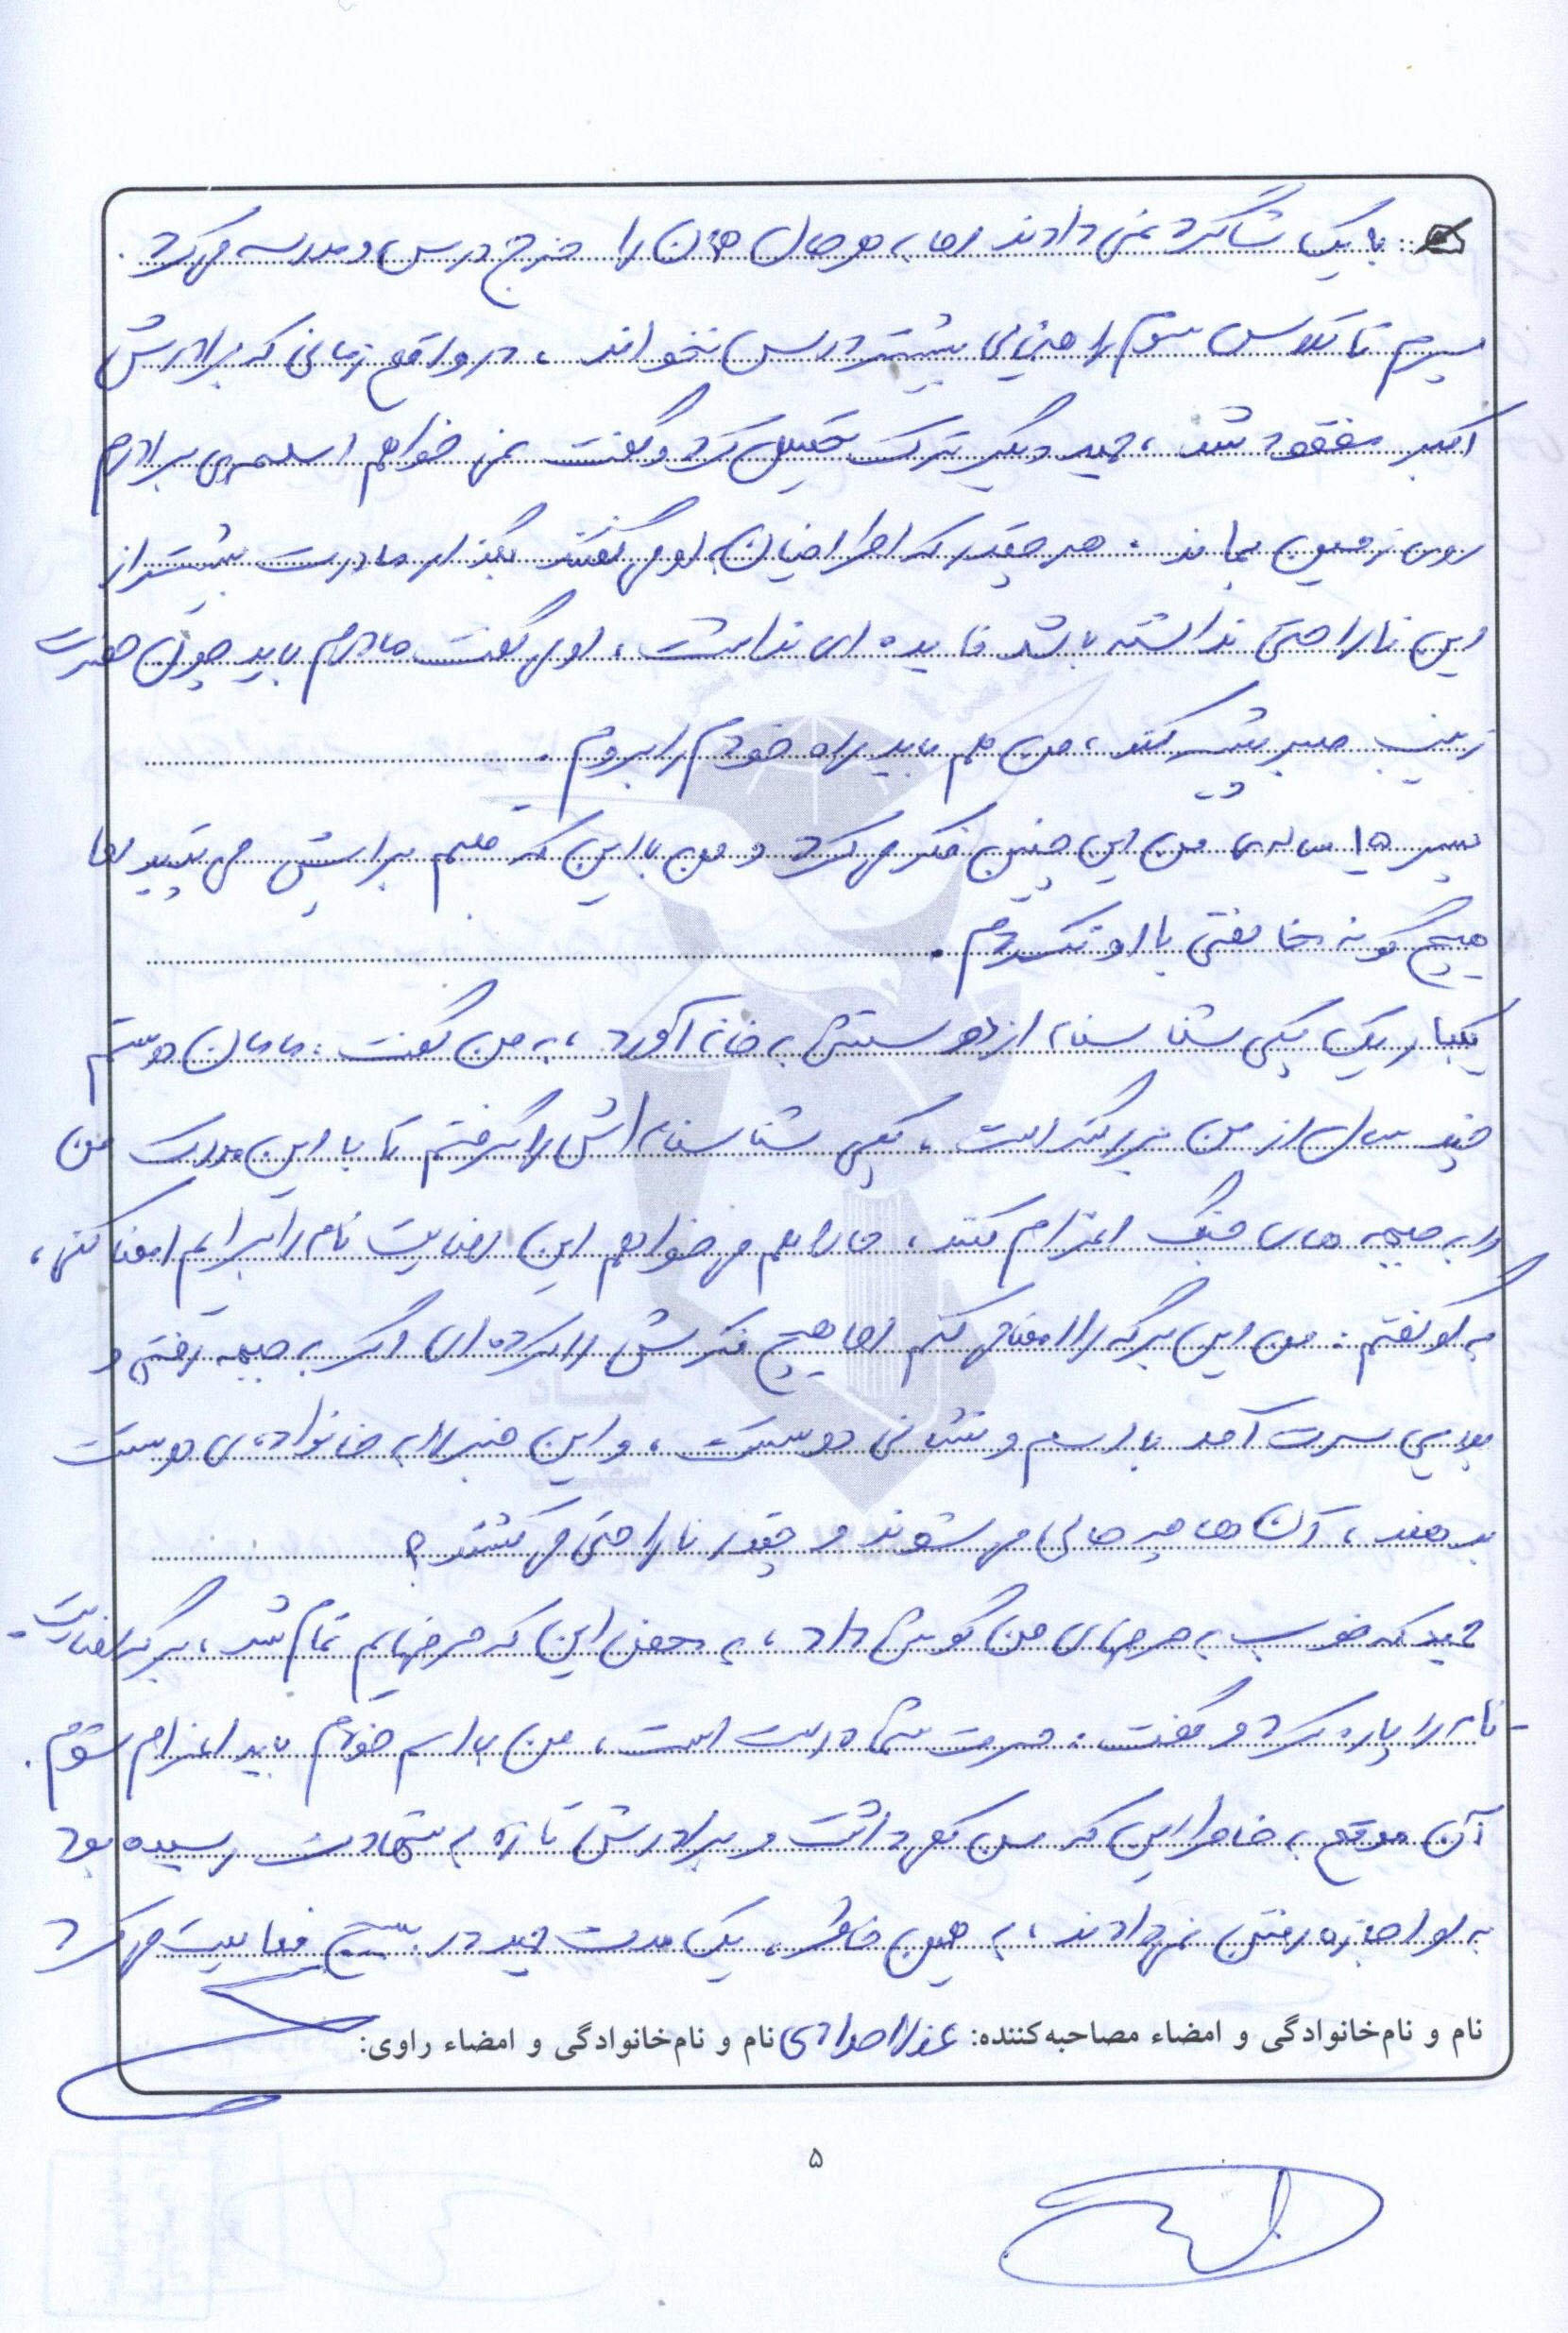 با یک شاگرد نمی دادند اما به هر حال همان را خرج درس و مدرسه می کرد.
پسرم تا کلاس سوم راهنمایی بیشتر درس نخواند، در واقع زمانی که برادرش
اکبر مفقود شد، حمید دیگر ترک تحصیل کرد و گفت نمی خواهم اسلحه ی برادرم
روی زمین بماند. هر چقدر که اطرافیان به او می گفتند بگذار مادرت بیشتر از
این ناراحتی نداشته باشد فایده ای نداشت، او می گفت مادرم باید چون حضرت
زینب صبر پیشه کند، من هم باید راه خودم را بروم.
پسر ۱۵ ساله ی من این چنین فکر می کرد و من با این که قلبم برایش می تپید اما
هیچ گونه مخالفتی با او نکردم.
یکبار یک کپی شناسنامه از دوستش به خانه آورد، به من گفت: مامان دوستم
چند سال از من بزرگتر است، کپی شناسنامه اش را گرفتم تا با این مدرک من
را به جبهه های جنگ اعزام کنند، حالا هم می خواهم این رضایت نامه را برایم امضا کنی،
به او گفتم: من این برگه را امضا می کنم اما هیچ فکرش را کرده ای اگر به جبهه رفتی و
بلایی سرت آمد با اسم و نشانی دوستت، و این خبر را به خانواده ی دوستت
بدهند، آن ها چه حالی می شوند و چقدر ناراحتی می کشند؟
حمید که خوب به حرفهای من گوش داد، به محض این که حرفهایم تمام شد، برگه رضایت-
-نامه را پاره کرد و گفت: حرف شما درست است، من به اسم خودم باید اعزام شوم.
آن موقع به خاطر این که سن کم داشت و برادرش تازه به شهادت رسیده بود
به او اجازه رفتن نمی دادند، به همین خاطر یک مدت حمید در بسیج فعالیت می کرد
نام و نام‌خانوادگی و امضاء مصاحبه‌کننده: عذرا مرادی نام و نام‌خانوادگی و امضاء راوی:
۵